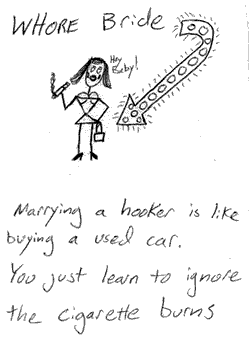 WHORE Bride
Hey
Baby!
Marrying a hooker is like
buying a used car.
You just learn to ignore
the cigarette burns